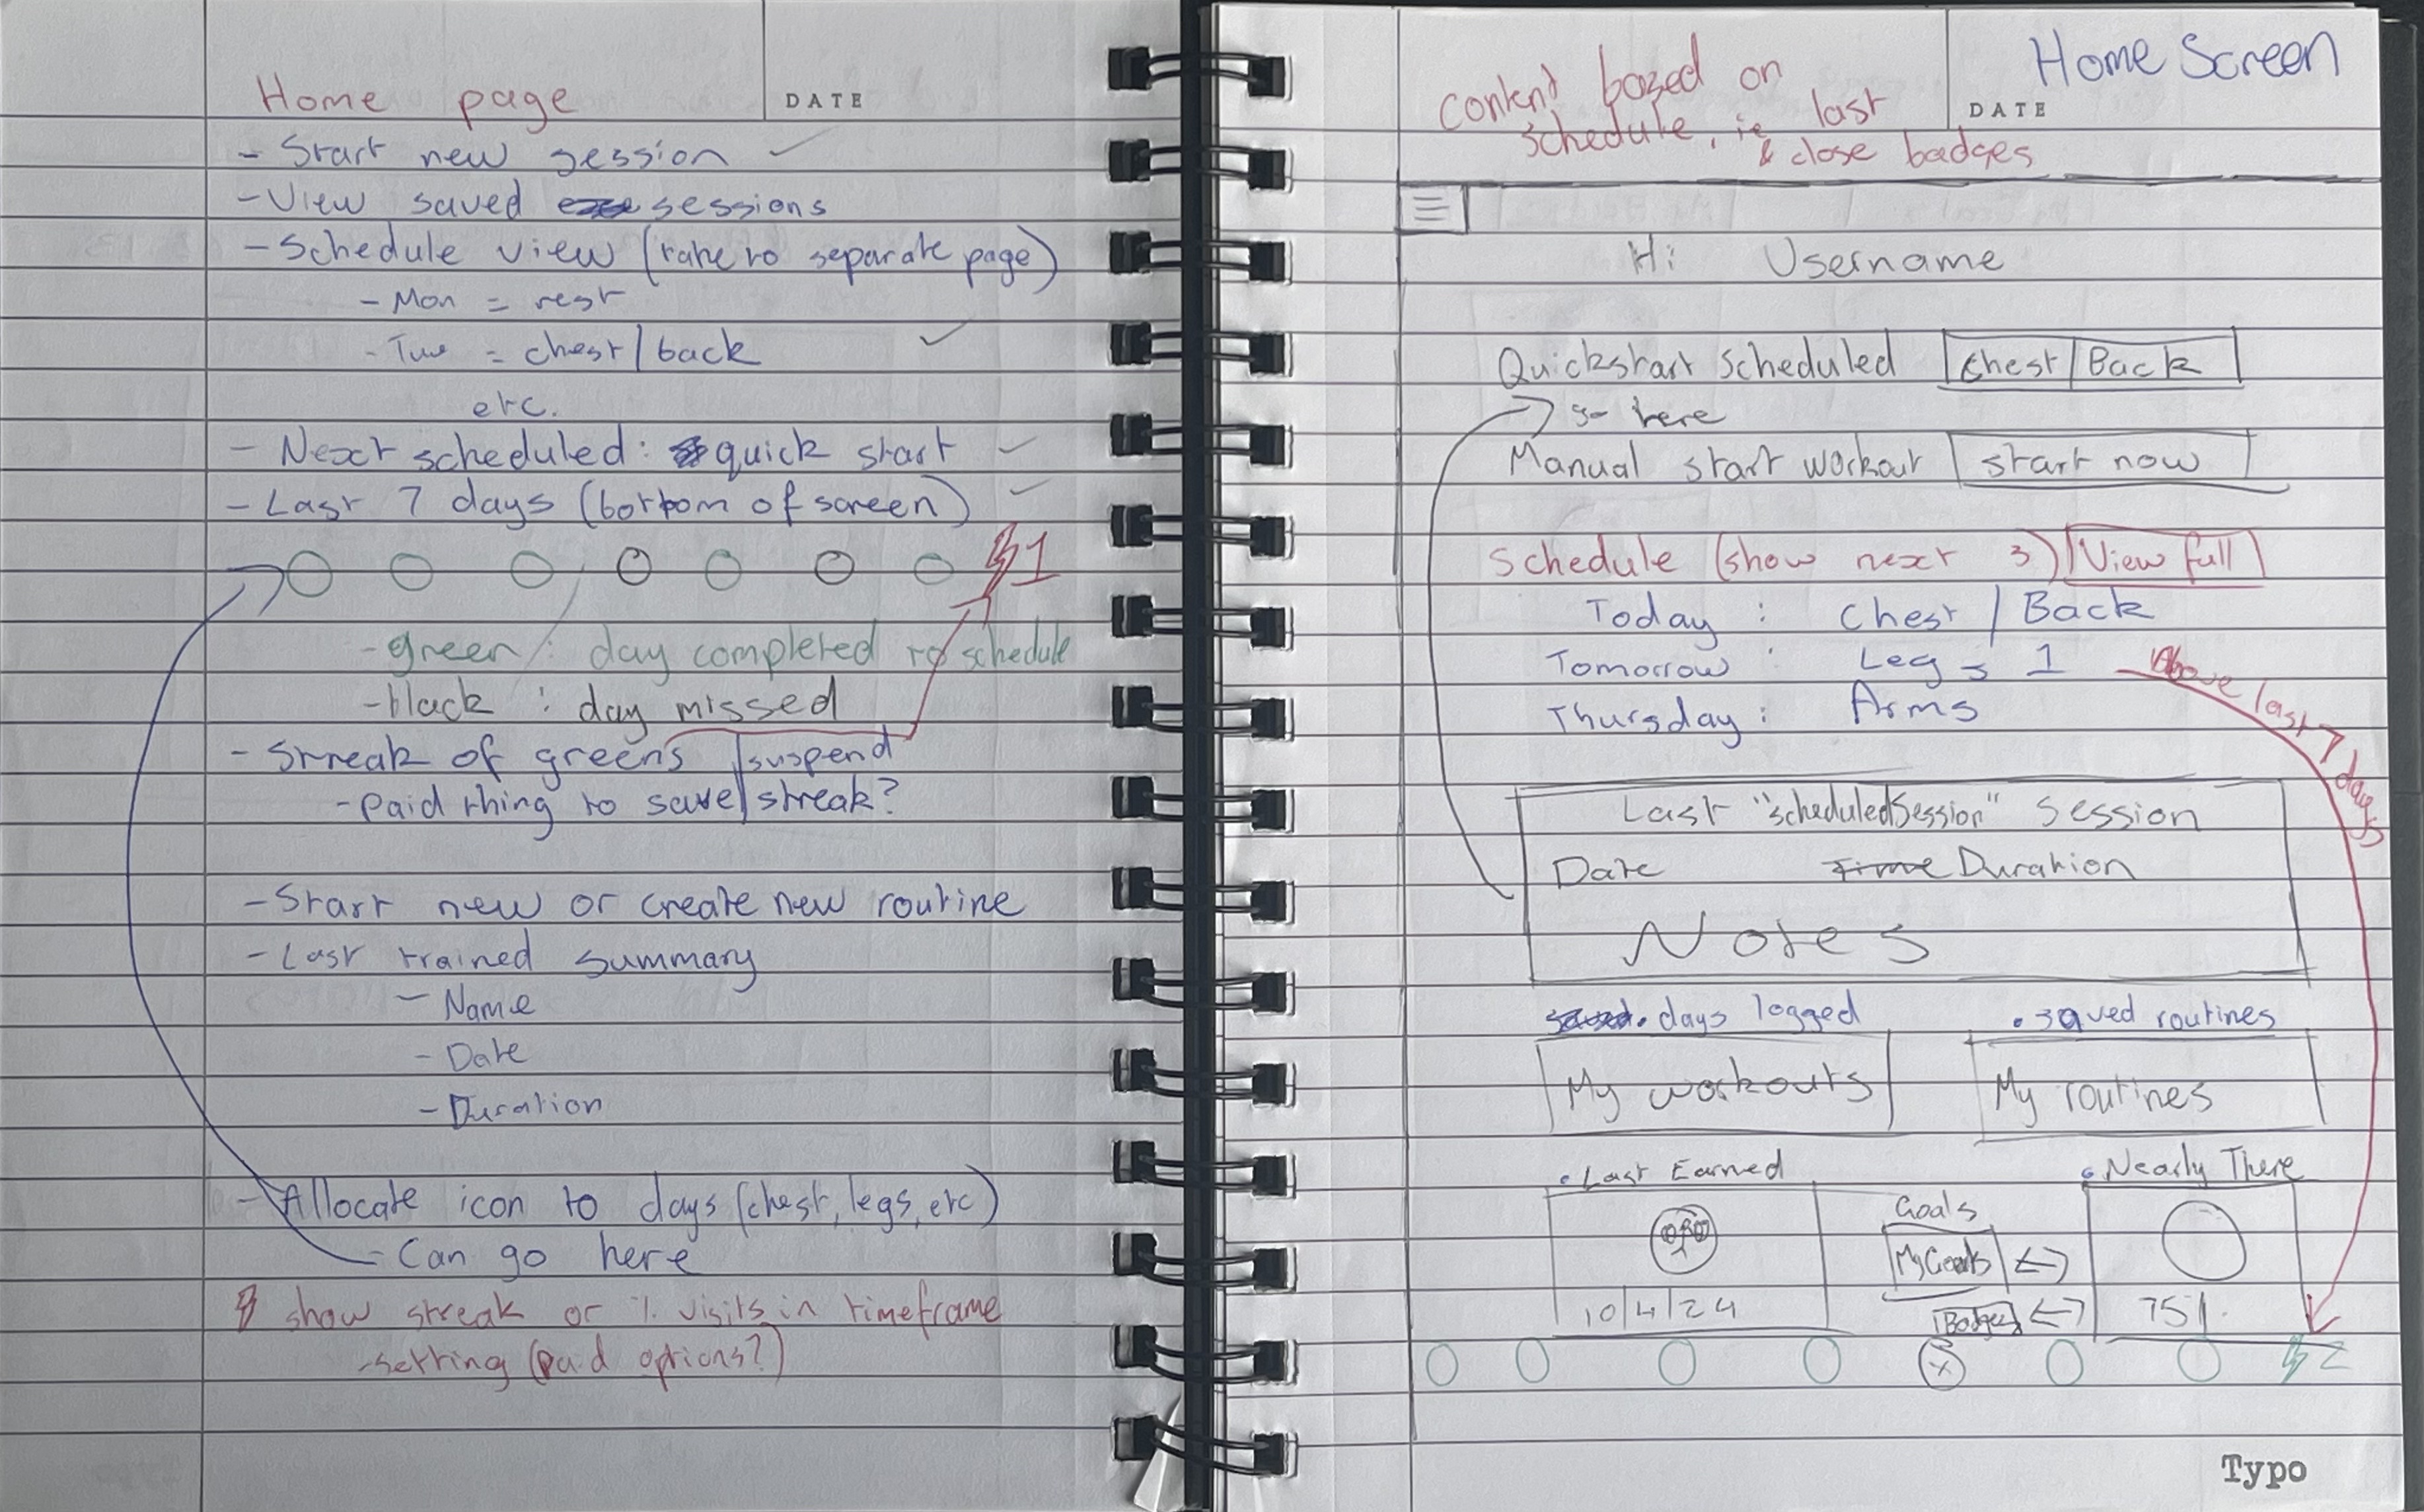 Home page
DATE
- Start new session ✓
- View saved sessions
- Schedule view (take to separate page)
- Mon = rest
- Tue = chest/back ✓
etc.
- Next scheduled: quick start ✓
- Last 7 days (bottom of screen) ✓
1
- green : day completed to schedule
- black : day missed
- Streak of greens
- paid thing to save/suspend streak?
- Start new or create new routine
- Last trained summary
- Name
- Date
- Duration
- Allocate icon to days (chest, legs, etc)
- Can go here
show streak or % visits in timeframe
- setting (paid options?)
Home Screen
DATE
Content based on
schedule, ie last
& close badges
Hi Username
Quickstart scheduled Chest/Back
go here
Manual start workout start now
Schedule (show next 3) View full
Today : Chest / Back
Tomorrow : Legs 1
Thursday : Arms
Above last 7 days
Last "scheduledSession" Session
Date Time Duration
Notes
. days logged
. saved routines
My workouts
My routines
. Last Earned
. Nearly There
Goals
My Goals <->
10/4/24
Badges <->
75%
x
2
Typo